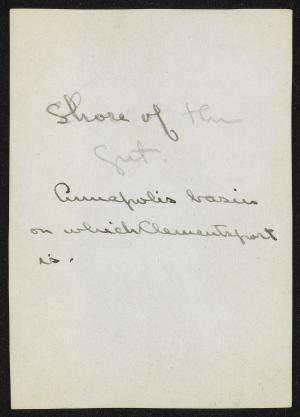 Shore of the
Gut.
Annapolis basin
on which Clementsport
is.